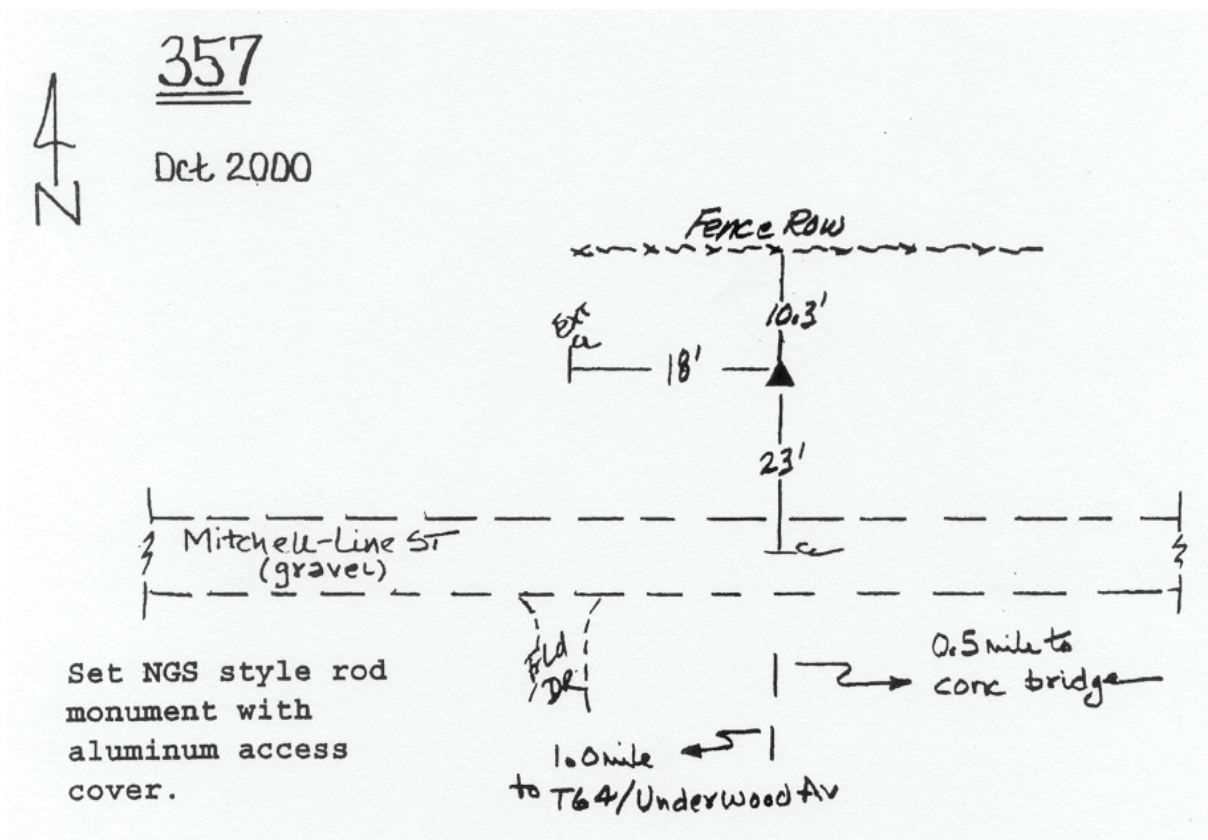 357
Oct 2000
N
Fence Row
10.3'
Ext
18'
23'
Mitchell-Line ST
(gravel)
Fld
DR
0.5 mile to
conc bridge
1.0 mile
to T64/Underwood Av
Set NGS style rod
monument with
aluminum access
cover.